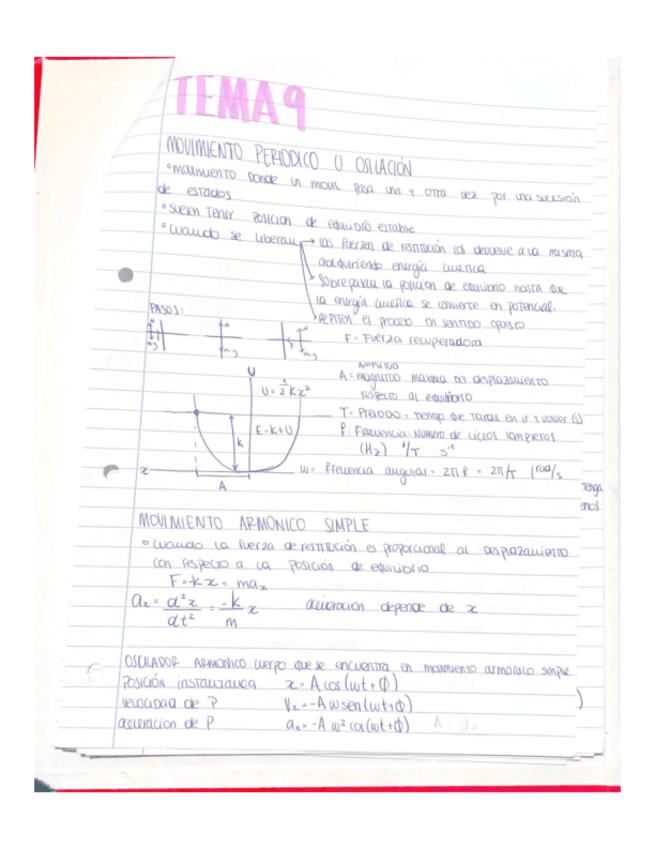 TEMA 9
MOVIMIENTO PERIODICO U OSILACIÓN
° movimiento donde un movil pasa una y otra vez por una sucesión
de estados
° suelen tener posicion de equilibrio estable
° cuando se liberan → las fuerzas de restitución los devuelve a la misma
adquiriendo energía cinetica
sobrepasan la posicion de equilibrio hasta que
la energía cinetica se convierte en potencial.
REPITEN el proceso en sentido opuesto
PASOS:
F = Fuerza recuperadora
N
mg
N
mg
F
N
mg
AMPLITUD
A = magnitud maxima del desplazamiento
respecto al equilibrio
U
U = 1/2 kx²
T = PERIODO = tiempo que tarda en ir y volver (s)
E = K + U
f: Frecuencia: Numero de ciclos completos
(Hz) 1/T s⁻¹
k
x
w = frecuencia angular = 2πf = 2π/T (rad/s
A
tenga
enos
MOVIMIENTO ARMONICO SIMPLE
° cuando la fuerza de restitución es proporcional al desplazamiento
con respecto a la posición de equilibrio
F = -kx = max
ax = d²x/dt² = -k/m x aceleracion depende de x
OSCILADOR ARMONICO cuerpo que se encuentra en movimiento armonico simple
Posición instantanea x = A cos(wt+ϕ)
velocidad de P Vx = -A w sen(wt+ϕ)
aceleracion de P ax = -A w² cos(wt+ϕ)